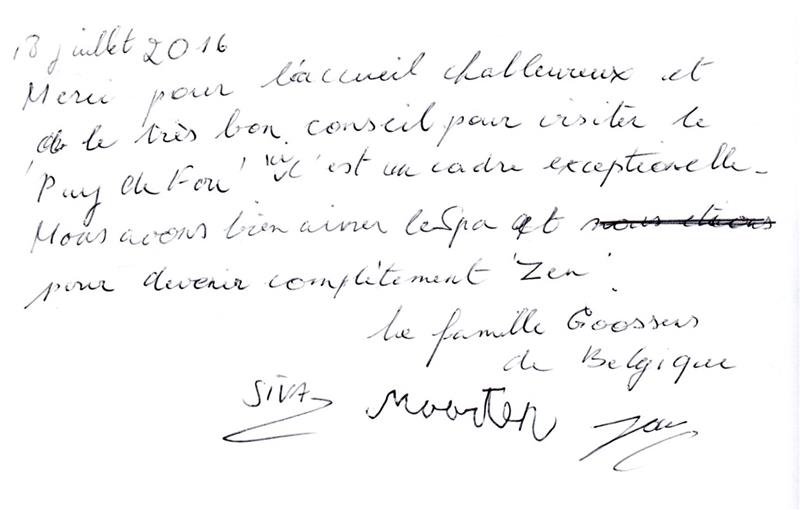 13 juillet 2016
Merci pour l'accueil challeureux et
de le très bon conseil pour visiter le
'Puy de Fou' ici c'est un cadre exceptionelle.
Nous avons bien aimer le Spa et nous étions
pour devenir complètement 'Zen'.
La famille Goossens
de Belgique
SIVA Maarten